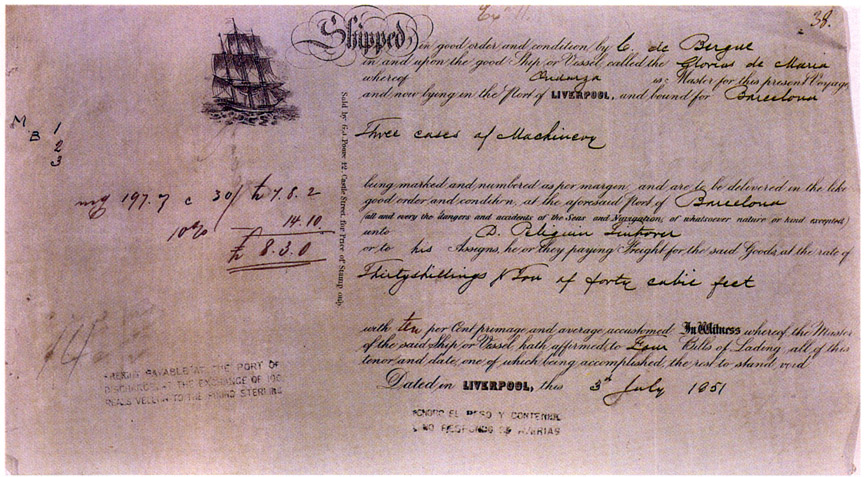 38.
Shipped, in good order and condition by C. de Bergue
in and upon the good Ship or Vessel, called the Glorias de Maria
whereof is Master for this present Voyage,
and now lying in the Port of LIVERPOOL, and bound for Barcelona
Three cases of Machinery
M B 1
2
3
being marked and numbered as per margin, and are to be delivered in the like
good order and condition, at the aforesaid Port of Barcelona
(all and every the dangers and accidents of the Seas and Navigation, of whatsoever nature or kind excepted)
unto D.
or to his Assigns, he or they paying Freight for the said Goods, at the rate of
Thirty shillings Ton of forty cubic feet
with ten per Cent primage and average accustomed. In Witness whereof, the Master
of the said Ship or Vessel, hath affirmed to Four Bills of Lading, all of this
tenor and date, one of which being accomplished, the rest to stand void
Dated in LIVERPOOL, this 3 July 1851
197.7 c 30/ 7.8.2
10% 14.10
8.3.0
Castle Street, for Price of Stamp only.
FREIGHT PAYABLE AT THE PORT OF
DISCHARGE AT THE EXCHANGE OF 100
REALS VELLON TO THE POUND STERLING
IGNORO EL PESO Y CONTENIDO
Y NO RESPONDO DE AVERIAS